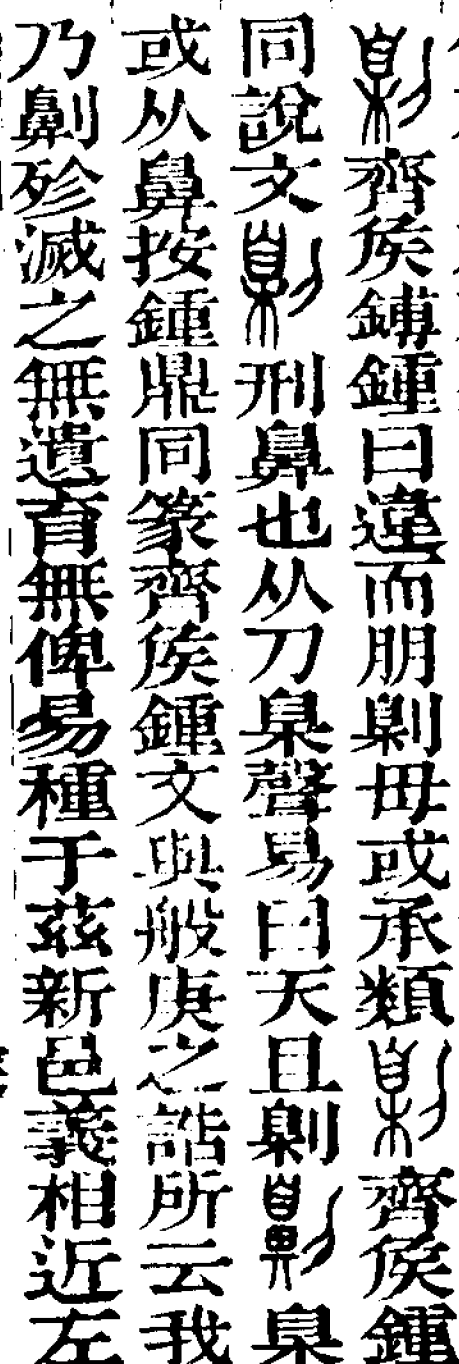 劓齊矦鎛鍾曰違而朋劓毋或承類劓齊矦鍾
同說文劓刑鼻也从刀臬聲易曰天且劓劓臬
或从鼻按鍾鼎同篆齊矦鍾文與般庚之誥所云我
乃劓殄滅之無遺育無俾易種于茲新邑義相近左